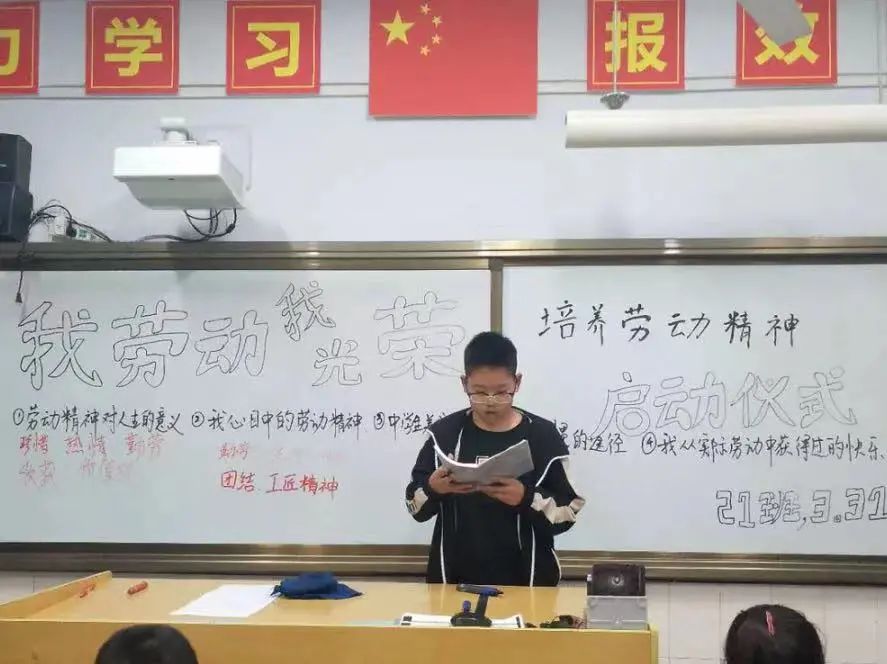 学习 报效
我劳动我光荣
培养劳动精神
启动仪式
①劳动精神对人生的意义 ②我心目中的劳动精神 ③中学生 的途径 ④我从实际劳动中获得过的快乐
珍惜 热情 勤劳
勤劳
收获
团结 工匠精神
21班,3.31